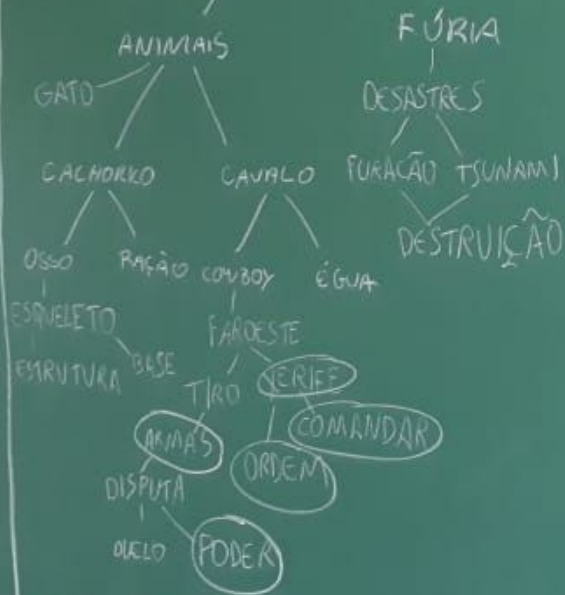 ANIMAIS
GATO
CACHORRO CAVALO
OSSO RAÇÃO COWBOY ÉGUA
ESQUELETO FAROESTE
ESTRUTURA BASE TIRO XERIFE
ARMAS ORDEM COMANDAR
DISPUTA
DUELO PODER
FÚRIA
DESASTRES
FURACÃO TSUNAMI
DESTRUIÇÃO